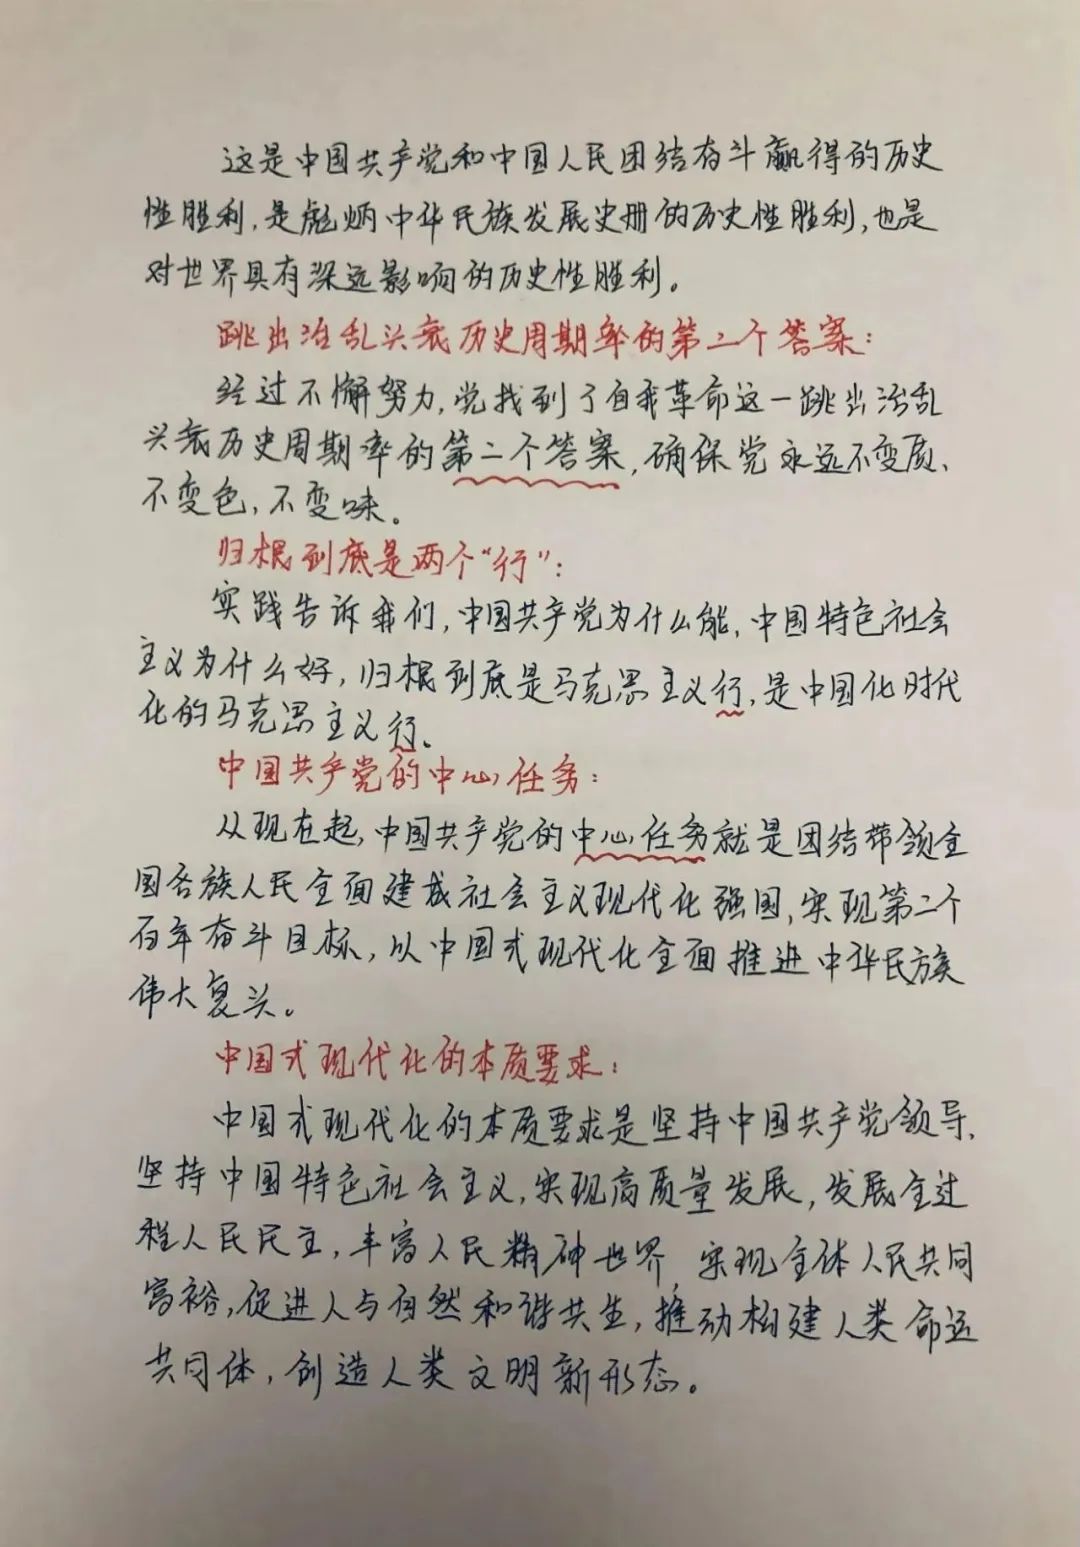 这是中国共产党和中国人民团结奋斗赢得的历史
性胜利,是彪炳中华民族发展史册的历史性胜利,也是
对世界具有深远影响的历史性胜利。
跳出治乱兴衰历史周期率的第二个答案:
经过不懈努力,党找到了自我革命这一跳出治乱
兴衰历史周期率的第二个答案,确保党永远不变质、
不变色,不变味。
归根到底是两个“行”:
实践告诉我们,中国共产党为什么能,中国特色社会
主义为什么好,归根到底是马克思主义行,是中国化时代
化的马克思主义行。
中国共产党的中心任务:
从现在起,中国共产党的中心任务就是团结带领全
国各族人民全面建成社会主义现代化强国,实现第二个
百年奋斗目标,以中国式现代化全面推进中华民族
伟大复兴。
中国式现代化的本质要求:
中国式现代化的本质要求是坚持中国共产党领导,
坚持中国特色社会主义,实现高质量发展,发展全过
程人民民主,丰富人民精神世界,实现全体人民共同
富裕,促进人与自然和谐共生,推动构建人类命运
共同体,创造人类文明新形态。